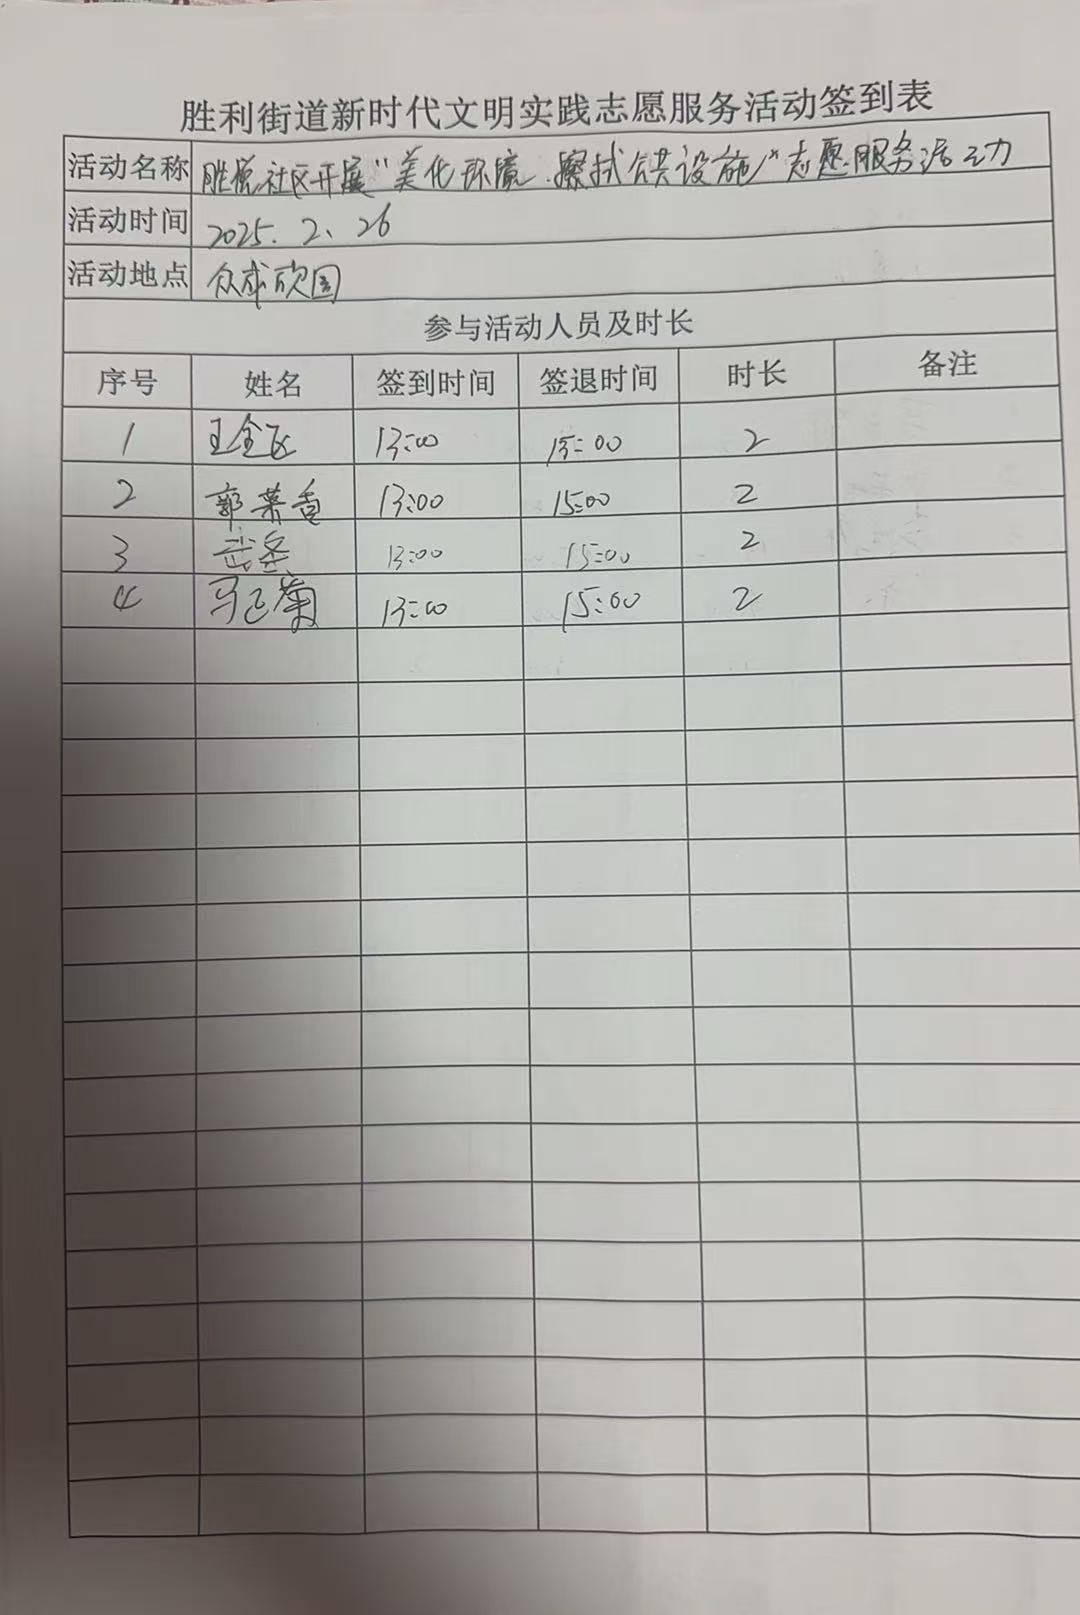 胜利街道新时代文明实践志愿服务活动签到表
活动名称 胜悦社区开展"美化环境、擦拭公共设施"志愿服务活动
活动时间 2025.2、26
活动地点 众成欣园
参与活动人员及时长
序号 姓名 签到时间 签退时间 时长 备注
1 王金飞 13:00 15:00 2
2 郭 香 13:00 15:00 2
3 武 13:00 15:00 2
4 马 菊 13:00 15:00 2